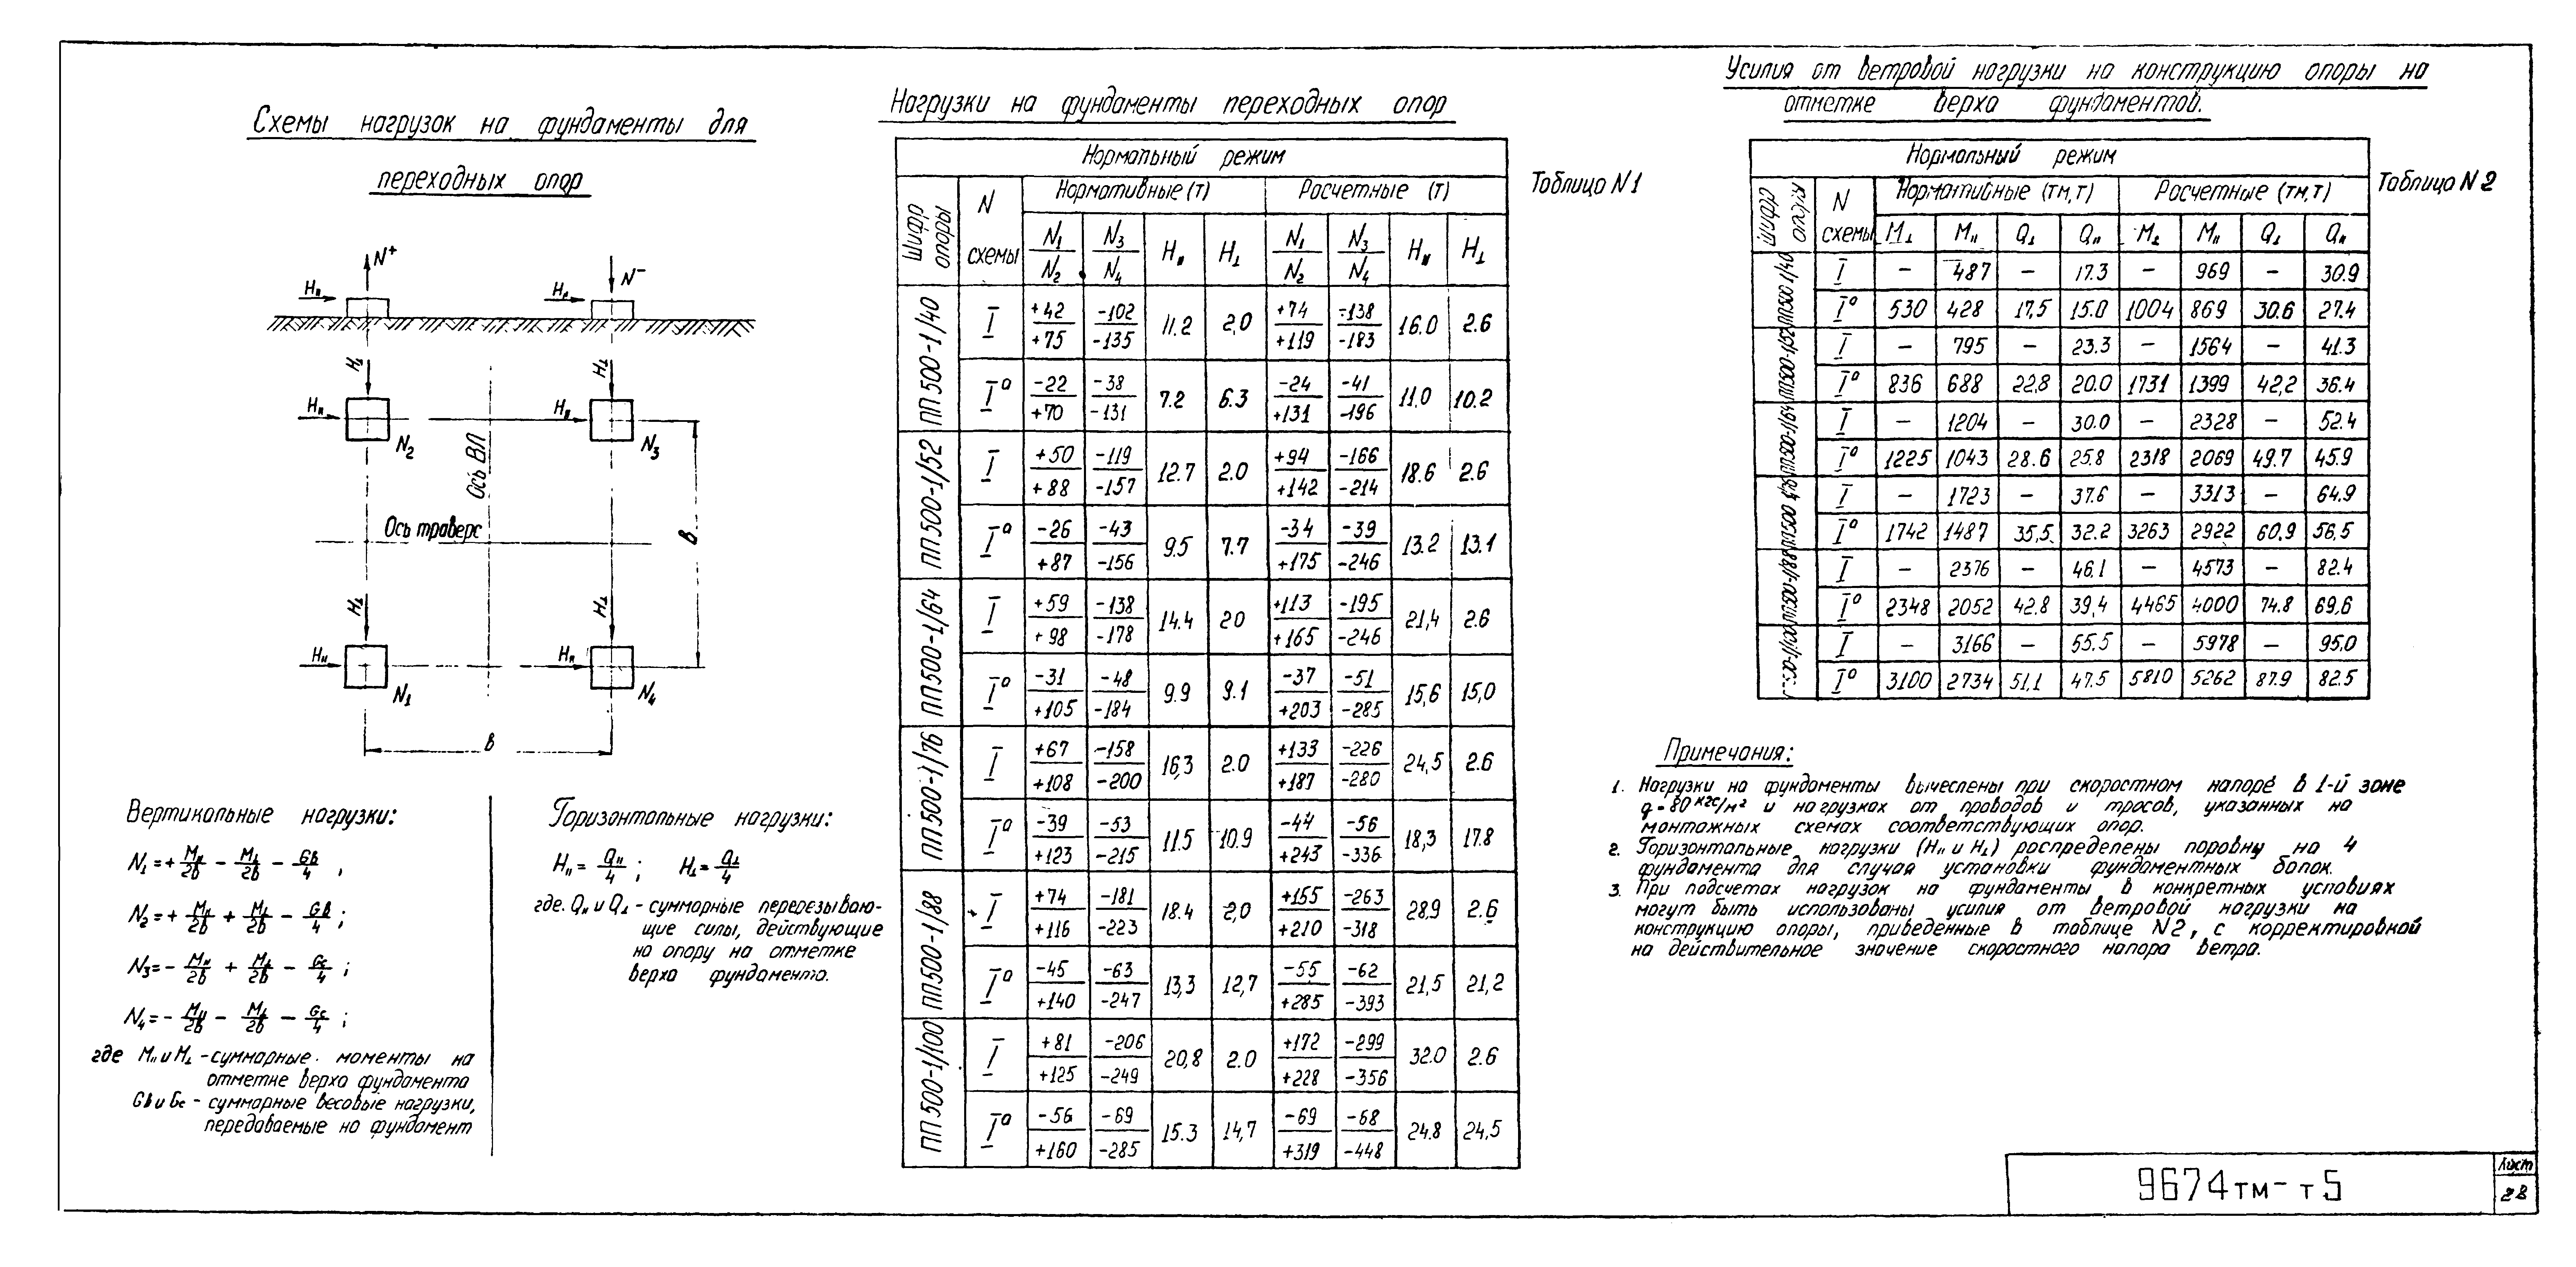 Схемы нагрузок на фундаменты для
переходных опор
N⁺
N⁻
H॥
H॥
H⊥
H⊥
H॥
H॥
N₂
N₃
Ось ВЛ
Ось траверс
в
H⊥
H⊥
H॥
H॥
N₁
N₄
в
Вертикальные нагрузки:
N₁=+ M॥/2в − M⊥/2в − Gв/4 ,
N₂=+ M॥/2в + M⊥/2в − Gв/4 ;
N₃=− M॥/2в + M⊥/2в − Gс/4 ;
N₄=− M॥/2в − M⊥/2в − Gс/4 ;
где M॥ и M⊥ - суммарные моменты на
отметке верха фундамента
Gв и Gс - суммарные весовые нагрузки,
передаваемые на фундамент
Горизонтальные нагрузки:
H॥= Q॥/4 ; H⊥= Q⊥/4
где Q॥ и Q⊥ - суммарные перерезываю-
щие силы, действующие
на опору на отметке
верха фундамента.
Нагрузки на фундаменты переходных опор
Таблица N1
Нормальный режим
Шифр опоры N схемы Нормативные (т) Расчетные (т)
N₁/N₂ N₃/N₄ H॥ H⊥ N₁/N₂ N₃/N₄ H॥ H⊥
ПП500-1/40 I +42/+75 -102/-135 11.2 2,0 +74/+119 -138/-183 16.0 2.6
Iа -22/+70 -38/-131 7.2 6.3 -24/+131 -41/-196 11,0 10.2
ПП500-1/52 I +50/+88 -119/-157 12.7 2.0 +94/+142 -166/-214 18.6 2.6
Iа -26/+87 -43/-156 9.5 7.7 -34/+175 -39/-246 13.2 13.1
ПП500-1/64 I +59/+98 -138/-178 14.4 20 +113/+165 -195/-246 21,4 2.6
Iа -31/+105 -48/-184 9.9 9.1 -37/+203 -51/-285 15,6 15,0
ПП500-1/76 I +67/+108 -158/-200 16,3 2.0 +133/+187 -226/-280 24,5 2.6
Iа -39/+123 -53/-215 11.5 10.9 -44/+243 -56/-336 18,3 17.8
ПП500-1/88 I +74/+116 -181/-223 18.4 2,0 +155/+210 -263/-318 28.9 2.6
Iа -45/+140 -63/-247 13,3 12,7 -55/+285 -62/-393 21,5 21,2
ПП500-1/100 I +81/+125 -206/-249 20,8 2.0 +172/+228 -299/-356 32.0 2.6
Iа -56/+160 -69/-285 15.3 14,7 -69/+319 -68/-448 24.8 24,5
Усилия от ветровой нагрузки на конструкцию опоры на
отметке верха фундаментов.
Таблица N2
Нормальный режим
Шифр опоры N схемы Нормативные (тм,т) Расчетные (тм,т)
M⊥ M॥ Q⊥ Q॥ M⊥ M॥ Q⊥ Q॥
ПП500 1/40 I — 487 — 17.3 — 969 — 30.9
Iа 530 428 17,5 15.0 1004 869 30.6 27.4
ПП500-1/52 I — 795 — 23.3 — 1564 — 41.3
Iа 836 688 22,8 20.0 1731 1399 42,2 36.4
ПП500-1/64 I — 1204 — 30.0 — 2328 — 52.4
Iа 1225 1043 28.6 25.8 2318 2069 49.7 45.9
ПП500 1/76 I — 1723 — 37.6 — 3313 — 64.9
Iа 1742 1487 35,5 32.2 3263 2922 60,9 56,5
ПП500-1/88 I — 2376 — 46,1 — 4573 — 82.4
Iа 2348 2052 42.8 39,4 4465 4000 74.8 69,6
I — 3166 — 55.5 — 5978 — 95.0
Iа 3100 2734 51,1 47.5 5810 5262 87.9 82.5
Примечания:
1. Нагрузки на фундаменты вычеслены при скоростном напоре в 1-й зоне
q-80 кгс/м² и нагрузках от проводов и тросов, указанных на
монтажных схемах соответствующих опор.
2. Горизонтальные нагрузки (H॥ и H⊥) распределены поровну на 4
фундамента для случая установки фундаментных балок.
3. При подсчетах нагрузок на фундаменты в конкретных условиях
могут быть использованы усилия от ветровой нагрузки на
конструкцию опоры, приведенные в таблице N2, с корректировкой
на действительное значение скоростного напора ветра.
9674тм-т5
Лист
28